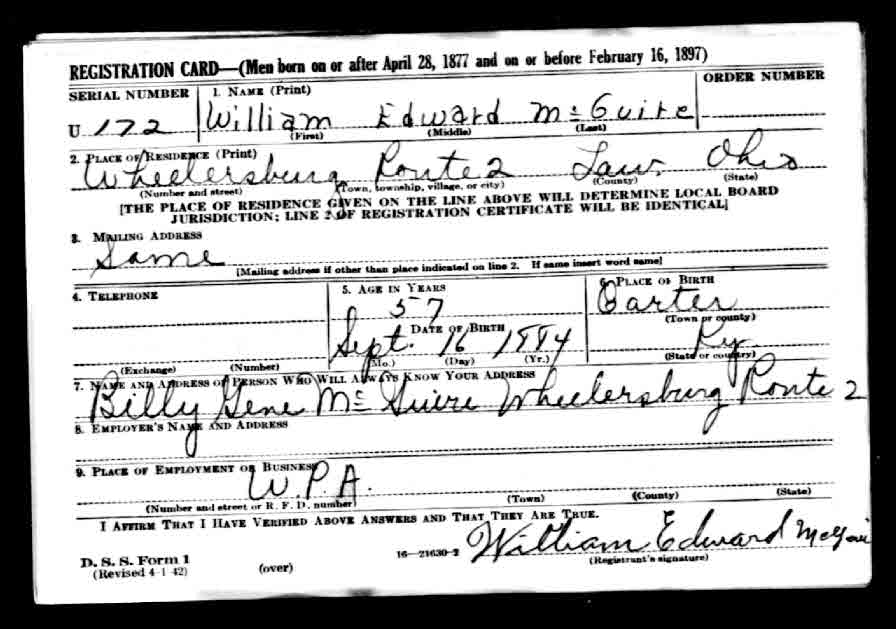 REGISTRATION CARD—(Men born on or after April 28, 1877 and on or before February 16, 1897)
SERIAL NUMBER 1. NAME (Print) ORDER NUMBER
U 172 William Edward McGuire
(First) (Middle) (Last)
2. PLACE OF RESIDENCE (Print)
Wheelersburg Route 2 Law. Ohio
(Number and street) (Town, township, village, or city) (County) (State)
[THE PLACE OF RESIDENCE GIVEN ON THE LINE ABOVE WILL DETERMINE LOCAL BOARD
JURISDICTION; LINE 2 OF REGISTRATION CERTIFICATE WILL BE IDENTICAL]
3. MAILING ADDRESS
Same
[Mailing address if other than place indicated on line 2. If same insert word same]
4. TELEPHONE 5. AGE IN YEARS 6. PLACE OF BIRTH
57 Carter
DATE OF BIRTH (Town or county)
Sept. 16 1884 Ky.
(Exchange) (Number) (Mo.) (Day) (Yr.) (State or country)
7. NAME AND ADDRESS OF PERSON WHO WILL ALWAYS KNOW YOUR ADDRESS
Billy Gene McGuire Wheelersburg Route 2
8. EMPLOYER'S NAME AND ADDRESS
9. PLACE OF EMPLOYMENT OR BUSINESS
W.P.A.
(Number and street or R. F. D. number) (Town) (County) (State)
I AFFIRM THAT I HAVE VERIFIED ABOVE ANSWERS AND THAT THEY ARE TRUE.
D. S. S. Form 1 16—21630-2 William Edward McGuire
(Revised 4-1-42) (over) (Registrant's signature)